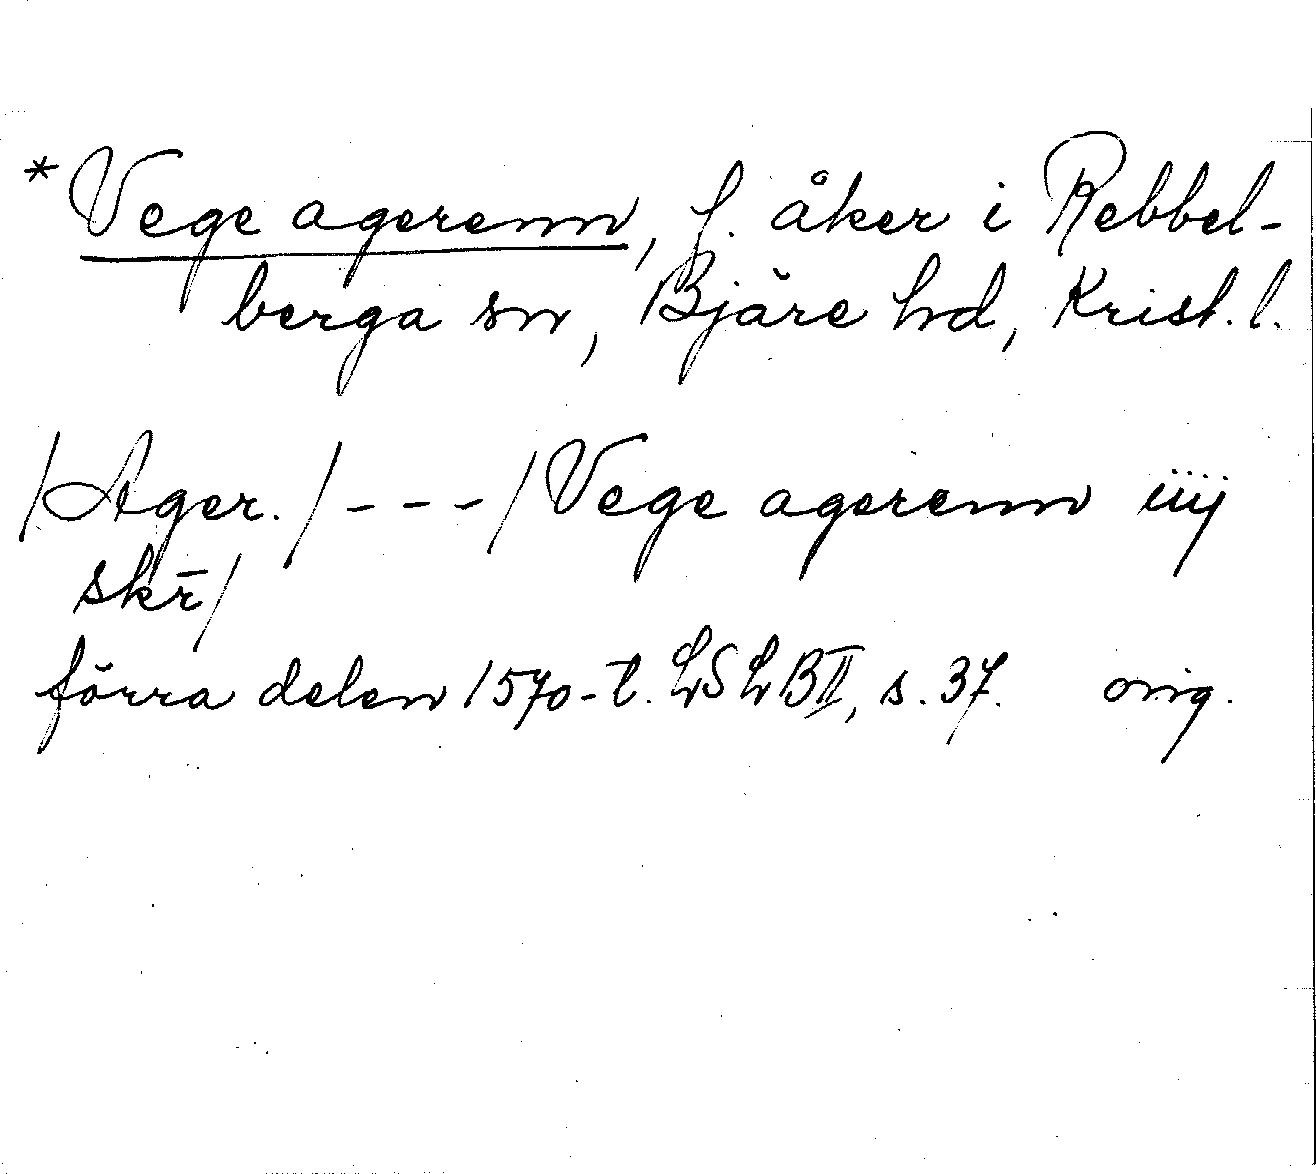 *Vege agerenn, f. åker i Rebbel-
berga sn, Bjäre hd, Krist. l.
/Ager./ --- /Vege agerenn iiij
skr̄/
förra delen 1570-t. LSLB II, s. 37. orig.